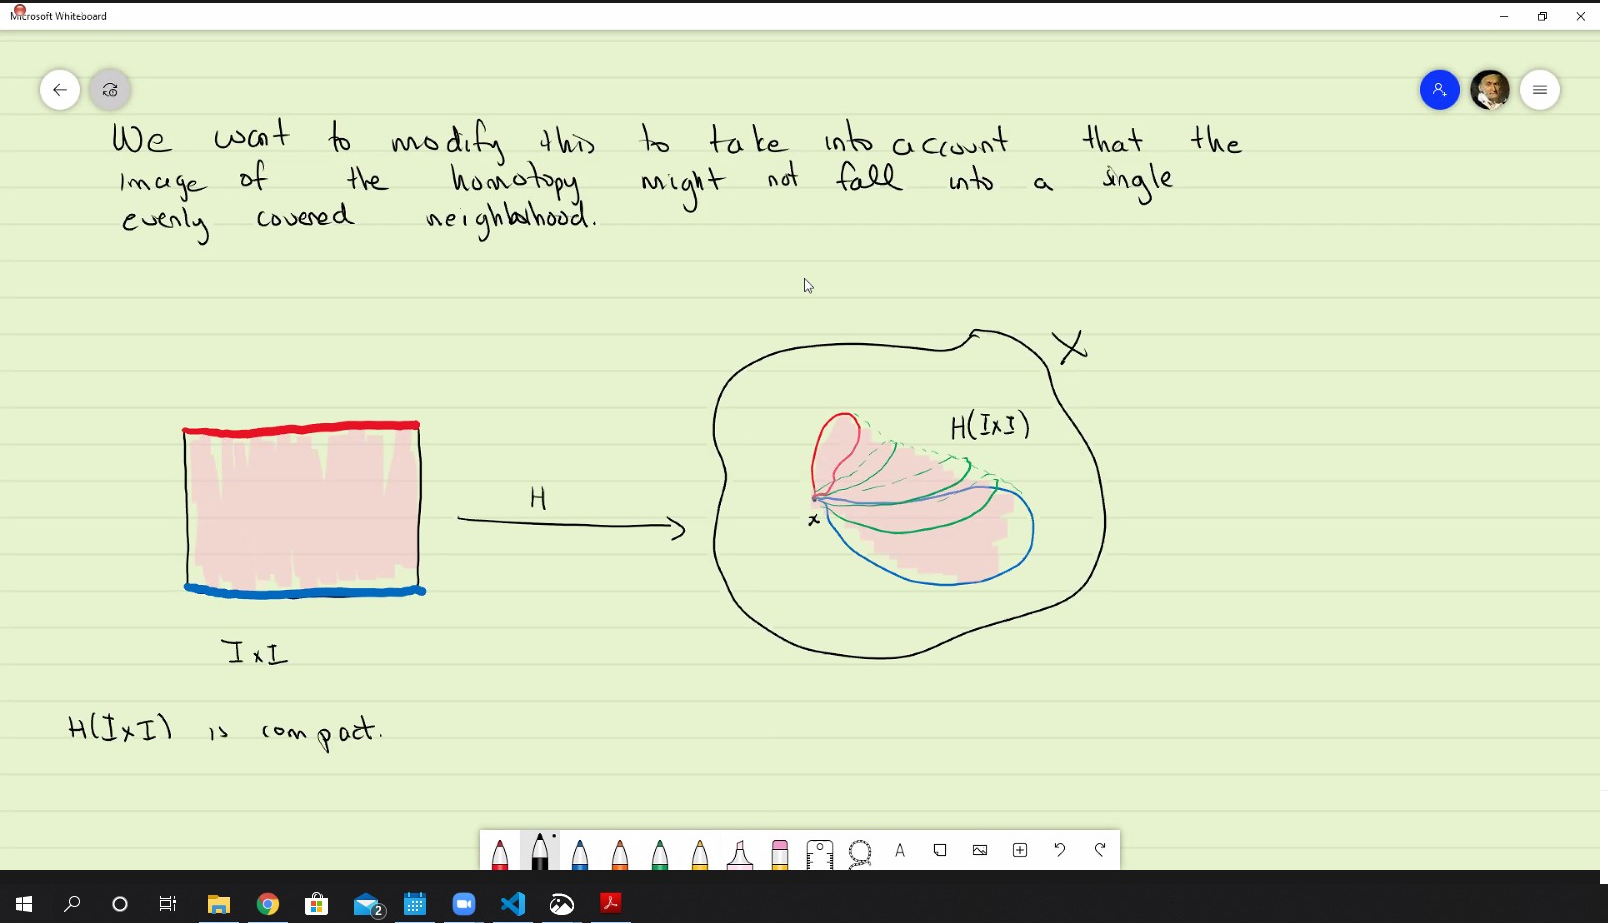 Microsoft Whiteboard
We want to modify this to take into account that the
image of the homotopy might not fall into a single
evenly covered neighborhood.
X
H(I×I)
H
x
I×I
H(I×I) is compact.
A
2